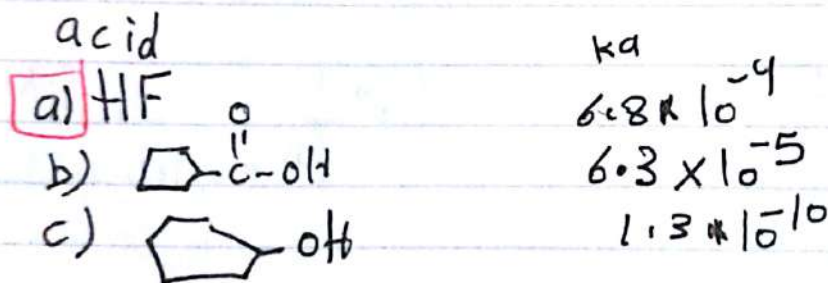 acid ka
a) HF 6.8 * 10^-4
O
b) C-OH 6.3 × 10^-5
c) OH 1.3 * 10^-10